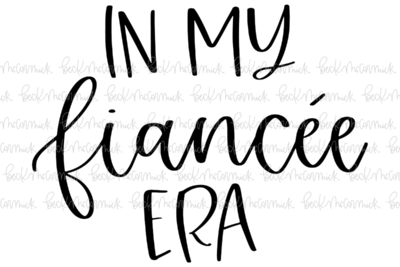 IN MY
fiancée
ERA